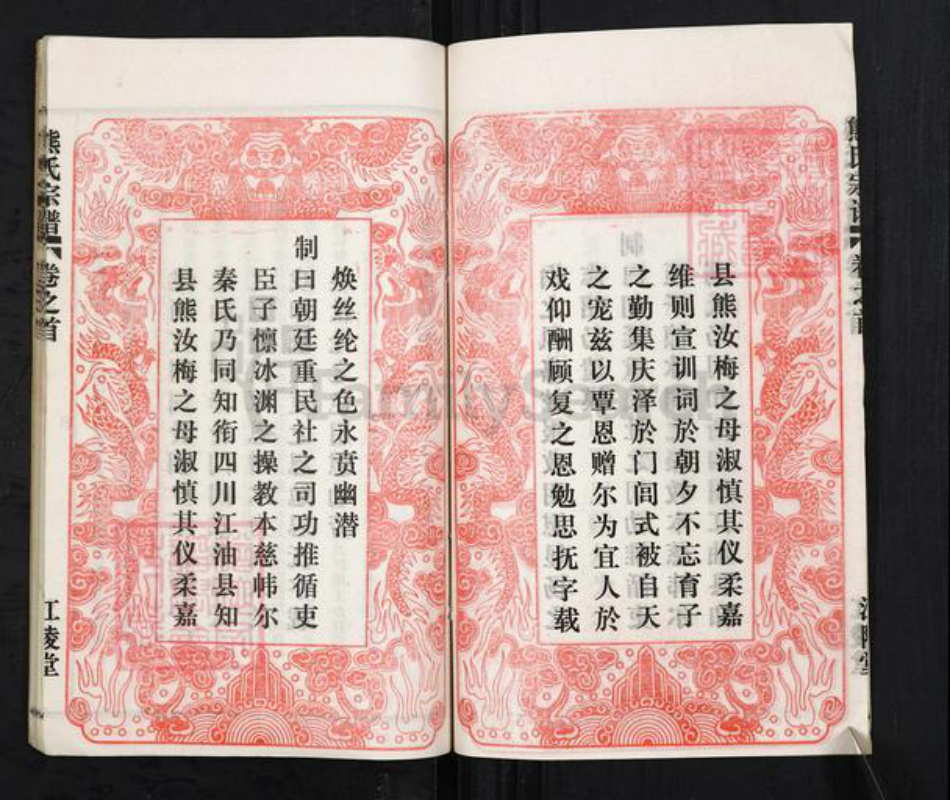 县熊汝梅之母淑慎其仪柔嘉
维则宣训词於朝夕不忘育子
之勤集庆泽於门闾式被自天
之宠兹以覃恩赠尔为宜人於
戏仰酬顾复之恩勉思抚字载
焕丝纶之色永贲幽潜
制曰朝廷重民社之司功推循吏
臣子懔冰渊之操教本慈帏尔
秦氏乃同知衔四川江油县知
县熊汝梅之母淑慎其仪柔嘉
熊氏宗谱 卷之首 江陵堂
FamilySearch